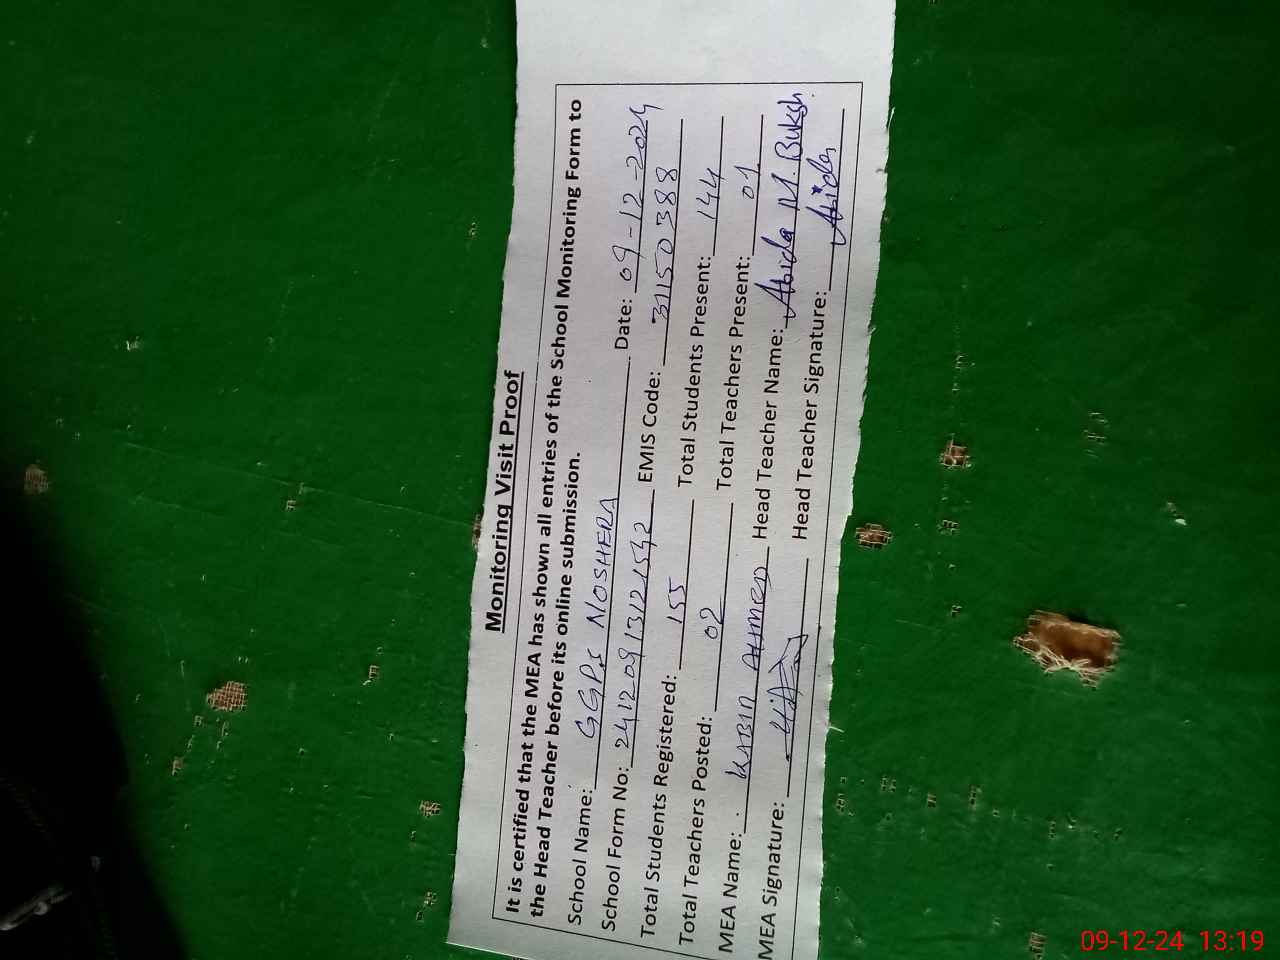 Monitoring Visit Proof
It is certified that the MEA has shown all entries of the School Monitoring Form to
the Head Teacher before its online submission.
School Name: GGPS NOSHERA Date: 09-12-2024
School Form No: 24120913121542 EMIS Code: 31150388
Total Students Registered: 155 Total Students Present: 144
Total Teachers Posted: 02 Total Teachers Present: 01
MEA Name: AHMED Head Teacher Name: Abida M. Buksh.
MEA Signature: Head Teacher Signature: Abida
09-12-24 13:19